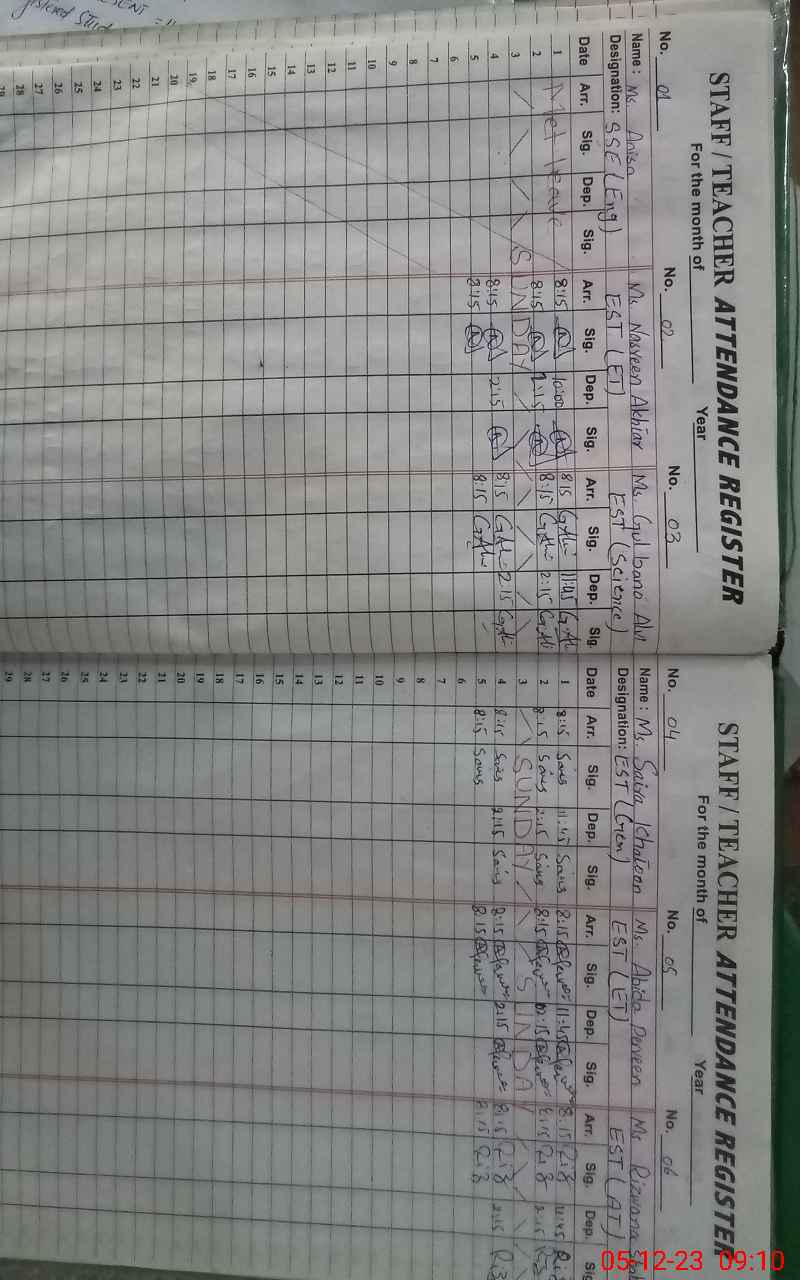 STAFF / TEACHER ATTENDANCE REGISTER
For the month of Year
No. 01 No. 02 No. 03
Name : Ms. Anisa Ms. Nasreen Akhtar Ms. Gul bano Alvi
Designation: SSE (Eng) EST (ET) EST (Science)
Date Arr. Sig. Dep. Sig. Arr. Sig. Dep. Sig. Arr. Sig. Dep. Sig.
1 Met leave 8:15 10:00 8:15 G.Alvi 11:45 G.Alvi
2 8:15 2:15 8:15 G.Alvi 2:15 G.Alvi
3 SUNDAY
4 8:15 2:15 8:15 G.Alvi 2:15 G.Alvi
5 8:15 8:15 G.Alvi
6
7
8
9
10
11
12
13
14
15
16
17
18
19
20
21
22
23
24
25
26
27
28
29
STAFF / TEACHER ATTENDANCE REGISTER
For the month of Year
No. 04 No. 05 No. 06
Name : Ms. Saira Khatoon Ms. Abida Perveen Ms. Rizwana
Designation: EST (Gen) EST (ET) EST (AT)
Date Arr. Sig. Dep. Sig. Arr. Sig. Dep. Sig. Arr. Sig. Dep. Sig
1 8:15 11:45 8:15 11:45 8:15 Riz 11:45 Riz
2 8:15 2:15 8:15 2:15 8:15 Riz 2:15 Riz
3 SUNDAY SUNDAY
4 8:15 2:15 8:15 2:15 8:15 Riz 2:15 Riz
5 8:15 8:15 8:15 Riz
6
7
8
9
10
11
12
13
14
15
16
17
18
19
20
21
22
23
24
25
26
27
28
29
05-12-23 09:10